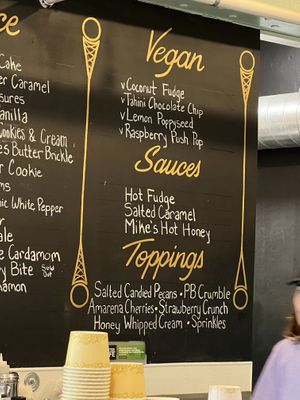 ce
Cake
er Caramel
sures
anilla
Cookies & Cream
's Butter Brickle
er Cookie
ms
nic White Pepper
r
ale
e Cardamom
y Bite Sold Out
namon
Vegan
v Coconut Fudge
v Tahini Chocolate Chip
v Lemon Poppyseed
v Raspberry Push Pop
Sauces
Hot Fudge
Salted Caramel
Mike's Hot Honey
Toppings
Salted Candied Pecans • PB Crumble
Amarena Cherries • Strawberry Crunch
Honey Whipped Cream • Sprinkles